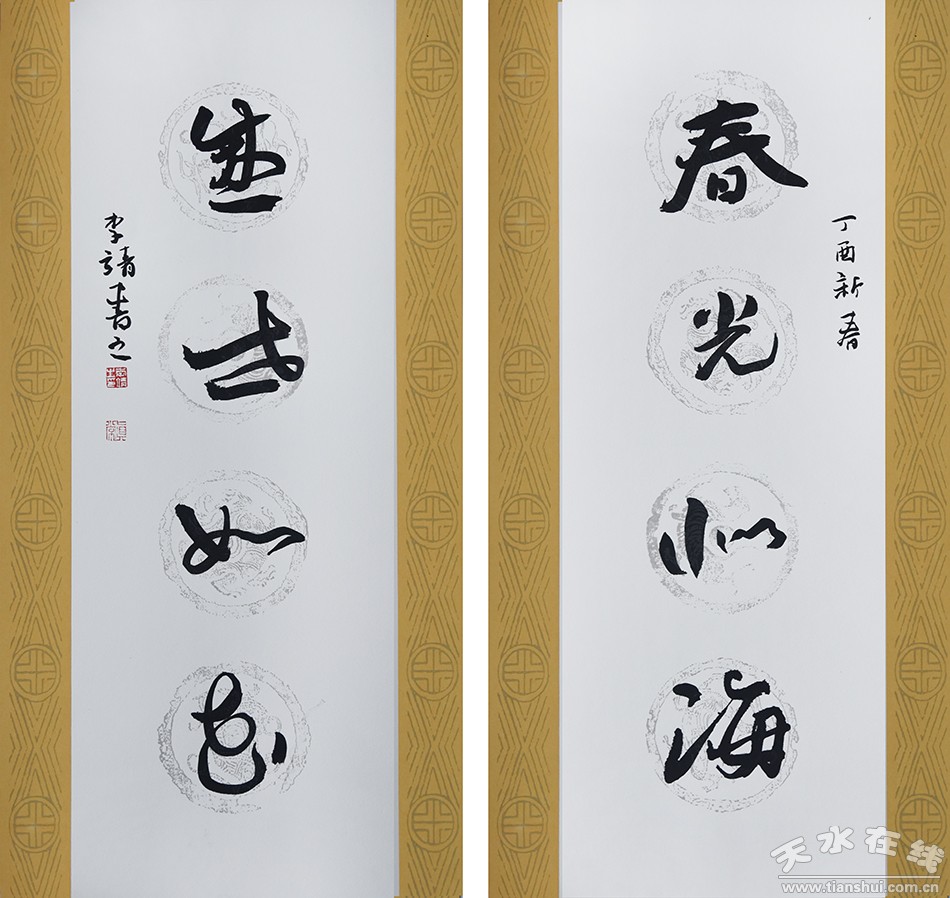 丁酉新春
春光似海
盛世如花
李靖书之
天水在线
www.tianshui.com.cn